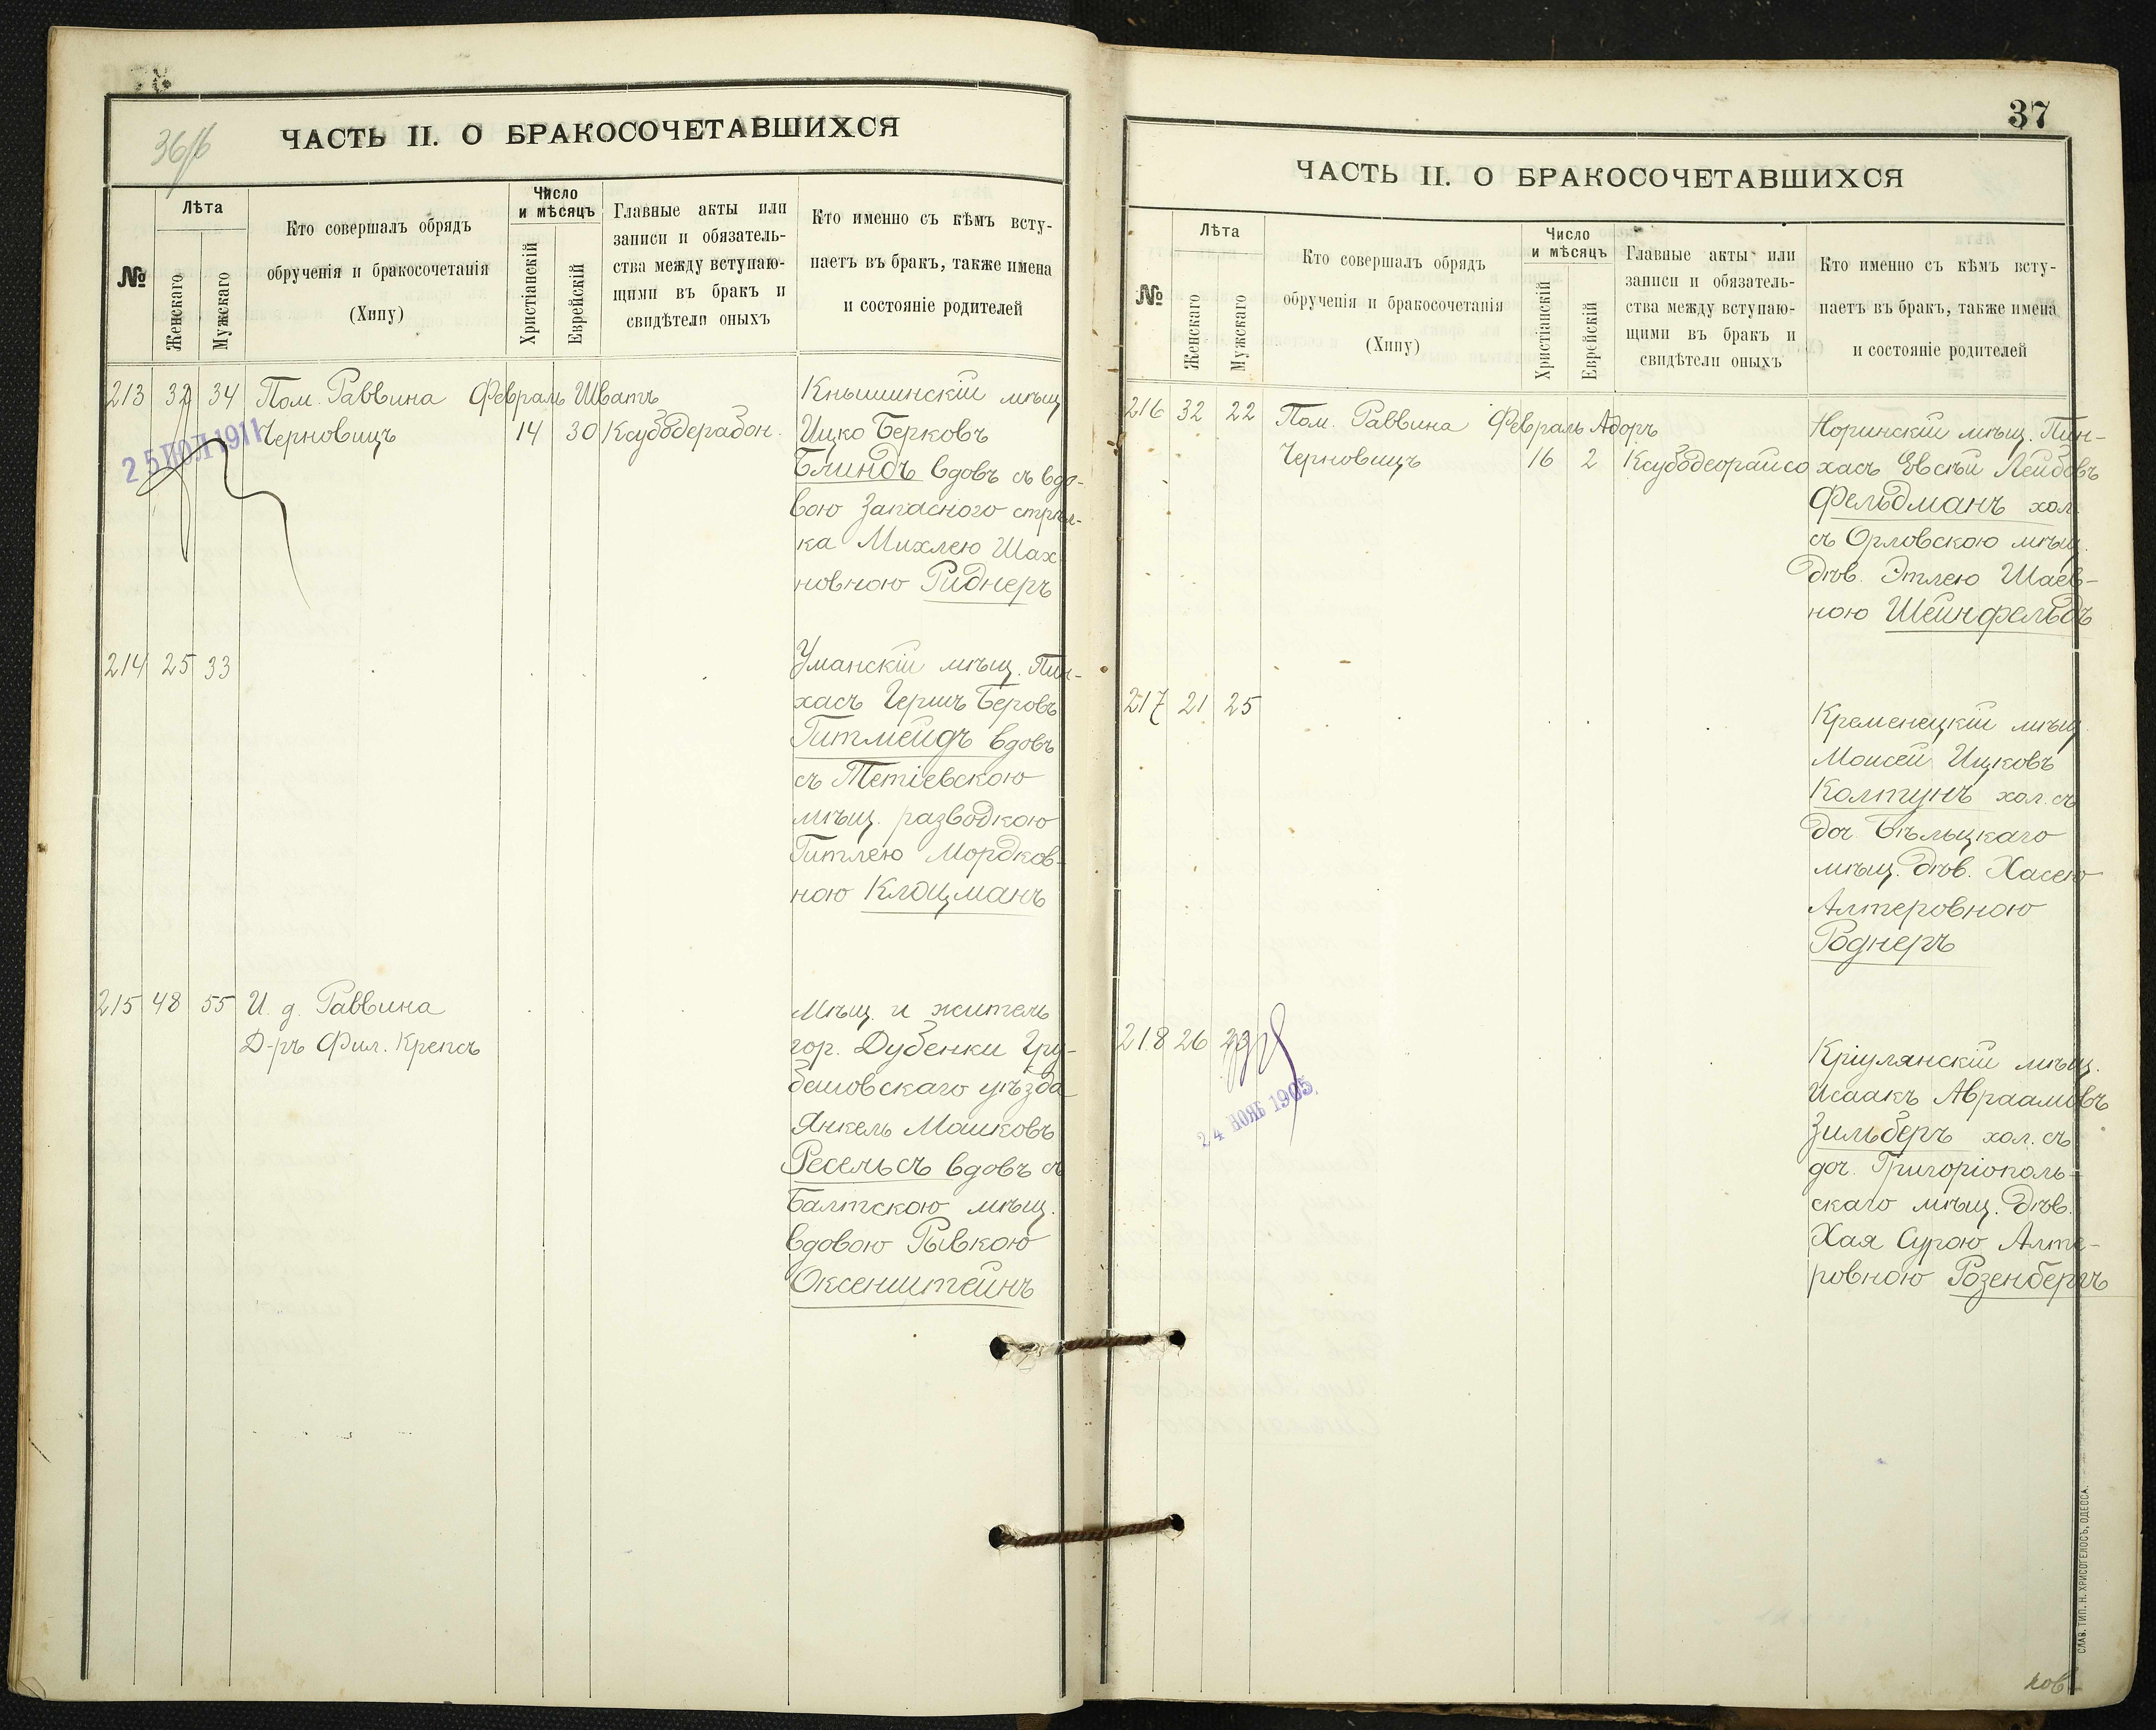 36/б
ЧАСТЬ II. О БРАКОСОЧЕТАВШИХСЯ
№
Лѣта
Женскаго
Мужскаго
Кто совершалъ обрядъ
обрученія и бракосочетанія
(Хипу)
Число
и мѣсяцъ
Христіанскій
Еврейскій
Главные акты или
записи и обязатель-
ства между вступаю-
щими въ бракъ и
свидѣтели оныхъ
Кто именно съ кѣмъ всту-
паетъ въ бракъ, также имена
и состояніе родителей
213 32 34 Пом. Раввина Февраль Шватъ Кнышинскій мѣщ
Черновицъ 14 30 Ксубодерабон. Ицко Берковъ
25 ІЮЛ 1911
Блиндъ вдовъ съ вдо-
вою запасного стрѣл-
ка Михлею Шах
новною Риднеръ
214 25 33 Уманскій мѣщ. Пин-
хасъ Гершъ Беровъ
Гитмейдъ вдовъ
съ Тетіевскою
мѣщ. разводкою
Гитлею Мордков-
ною Клоцманъ
215 48 55 И. д. Раввина Мѣщ. и житель
Д-ръ Фил. Крепсъ гор. Дубенки Гру-
бешовскаго уѣзда
Янкель Мошковъ
Ресельсъ вдовъ съ
Балтскою мѣщ.
вдовою Рывкою
Оксенштейнъ
37
ЧАСТЬ II. О БРАКОСОЧЕТАВШИХСЯ
№
Лѣта
Женскаго
Мужскаго
Кто совершалъ обрядъ
обрученія и бракосочетанія
(Хипу)
Число
и мѣсяцъ
Христіанскій
Еврейскій
Главные акты или
записи и обязатель-
ства между вступаю-
щими въ бракъ и
свидѣтели оныхъ
Кто именно съ кѣмъ всту-
паетъ въ бракъ, также имена
и состояніе родителей
216 32 22 Пом. Раввина Февраль Адоръ Норинскій мѣщ. Пин-
Черновицъ 16 2 Ксубодеорайсо хасъ Евсѣй Лейбовъ
Фельдманъ хол.
съ Орловскою мѣщ.
дѣв. Этлею Шаев-
ною Шейнфельдъ
217 21 25 Кременецкій мѣщ.
Моисей Ицковъ
Колтунъ хол. съ
доч. Бѣльцкаго
мѣщ. дѣв. Хасею
Алтеровною
Роднеръ
218 26 23 Кріулянскій мѣщ.
24 НОЯБ 1905
Исаакъ Авраамовъ
Зильберъ хол. съ
доч. Григоріополь-
скаго мѣщ. дѣв.
Хая Сурою Алте-
ровною Розенбергъ
СЛАВ. ТИП. Н. ХРИСОГЕЛОСЪ, ОДЕССА.